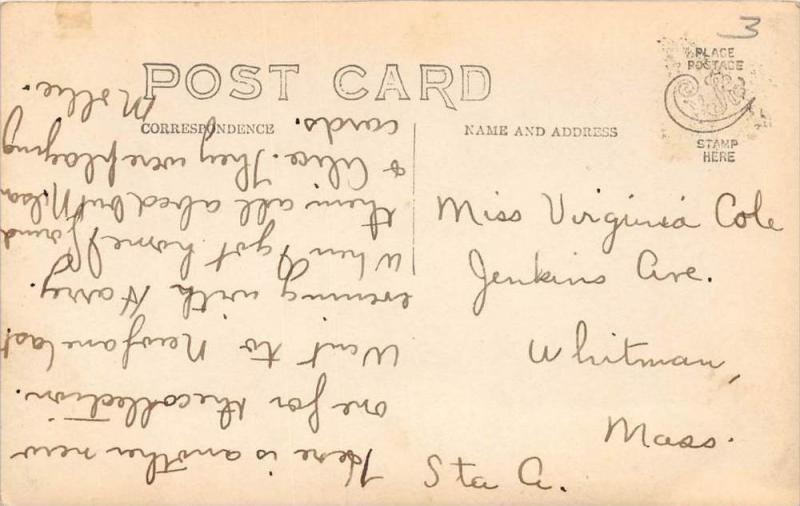 3
PLACE
POSTAGE
STAMP
HERE
POST CARD
CORRESPONDENCE
NAME AND ADDRESS
Here is another new
one for the collection.
Went to Newfane last
evening with Harry.
When I got home, found
them all abed but Nelson
& Alice. They were playing
cards.
Mollie.
Miss Virginia Cole
Jenkins Ave.
Whitman,
Mass.
Sta A.